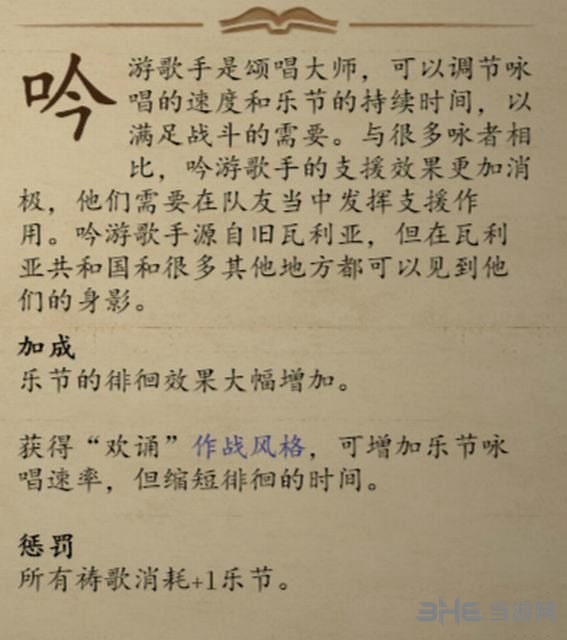 吟游歌手是颂唱大师，可以调节咏
唱的速度和乐节的持续时间，以
满足战斗的需要。与很多咏者相
比，吟游歌手的支援效果更加消
极，他们需要在队友当中发挥支援作
用。吟游歌手源自旧瓦利亚，但在瓦利
亚共和国和很多其他地方都可以见到他
们的身影。
加成
乐节的徘徊效果大幅增加。
获得“欢诵”作战风格，可增加乐节咏
唱速率，但缩短徘徊的时间。
惩罚
所有祷歌消耗+1乐节。
3HE 当游网